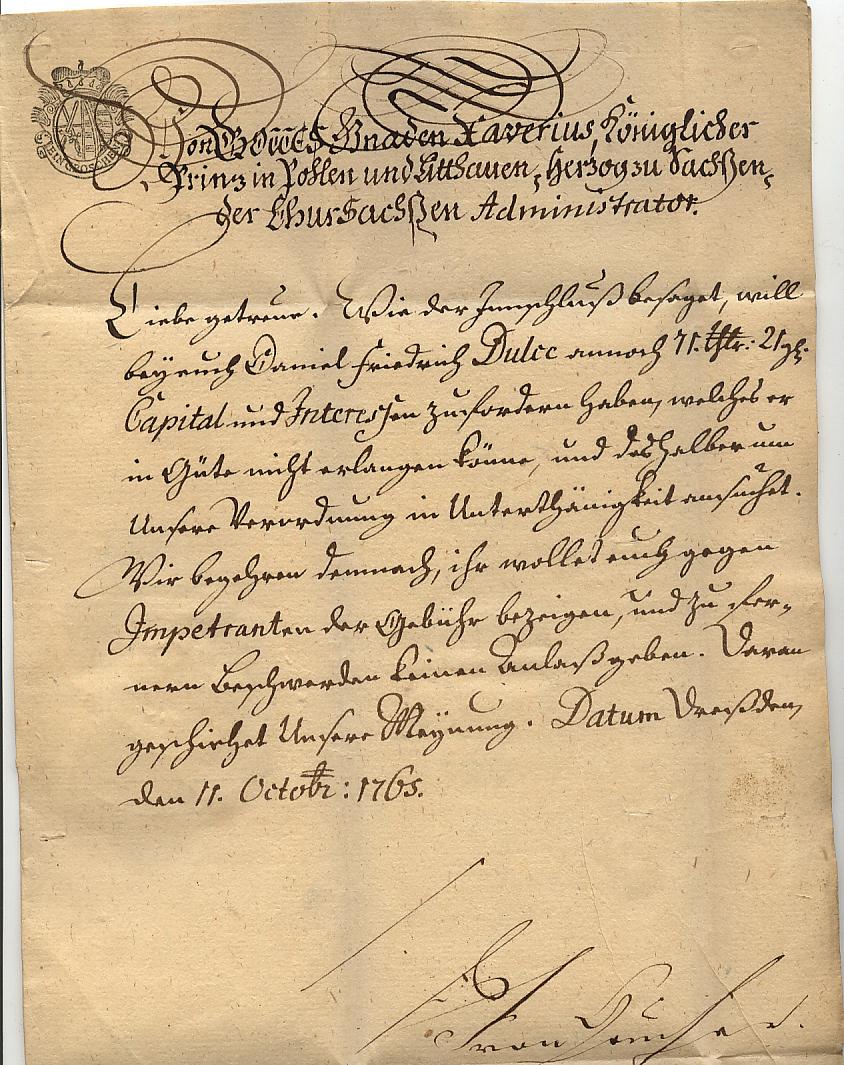 EIN GROSCHEN
Von GOTTES Gnaden Xaverius, Königlicher
Prinz in Pohlen und Litthauen, Herzog zu Sachßen,
der Chur Sachßen Administrator.
Liebe getreue. Wie der Innschluß besaget, will
bey euch Daniel Friedrich Dulce annoch 71. thlr: 21 gl.
Capital und Interessen zufordern haben, welches er
in Güte nicht erlangen könne, und deshalber um
Unsere Verordnung in Unterthänigkeit ansuchet.
Wir begehren demnach, ihr wollet euch gegen
Impetranten der Gebühr bezeigen, und zu fer-
nern Beschwerden keinen Anlaß geben. Daran
geschiehet Unsere Meynung. Datum Dreßden,
den 11. Octobr: 1765.
von